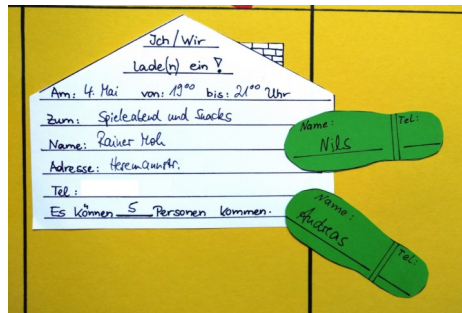 Ich/Wir
lade(n) ein!
Am: 4. Mai von: 19⁰⁰ bis: 21⁰⁰ Uhr
Zum: Spieleabend und Snacks
Name: Rainer
Adresse:
Tel:
Es können 5 Personen kommen.
Name: Tel:
Nils
Name: Tel:
Andreas